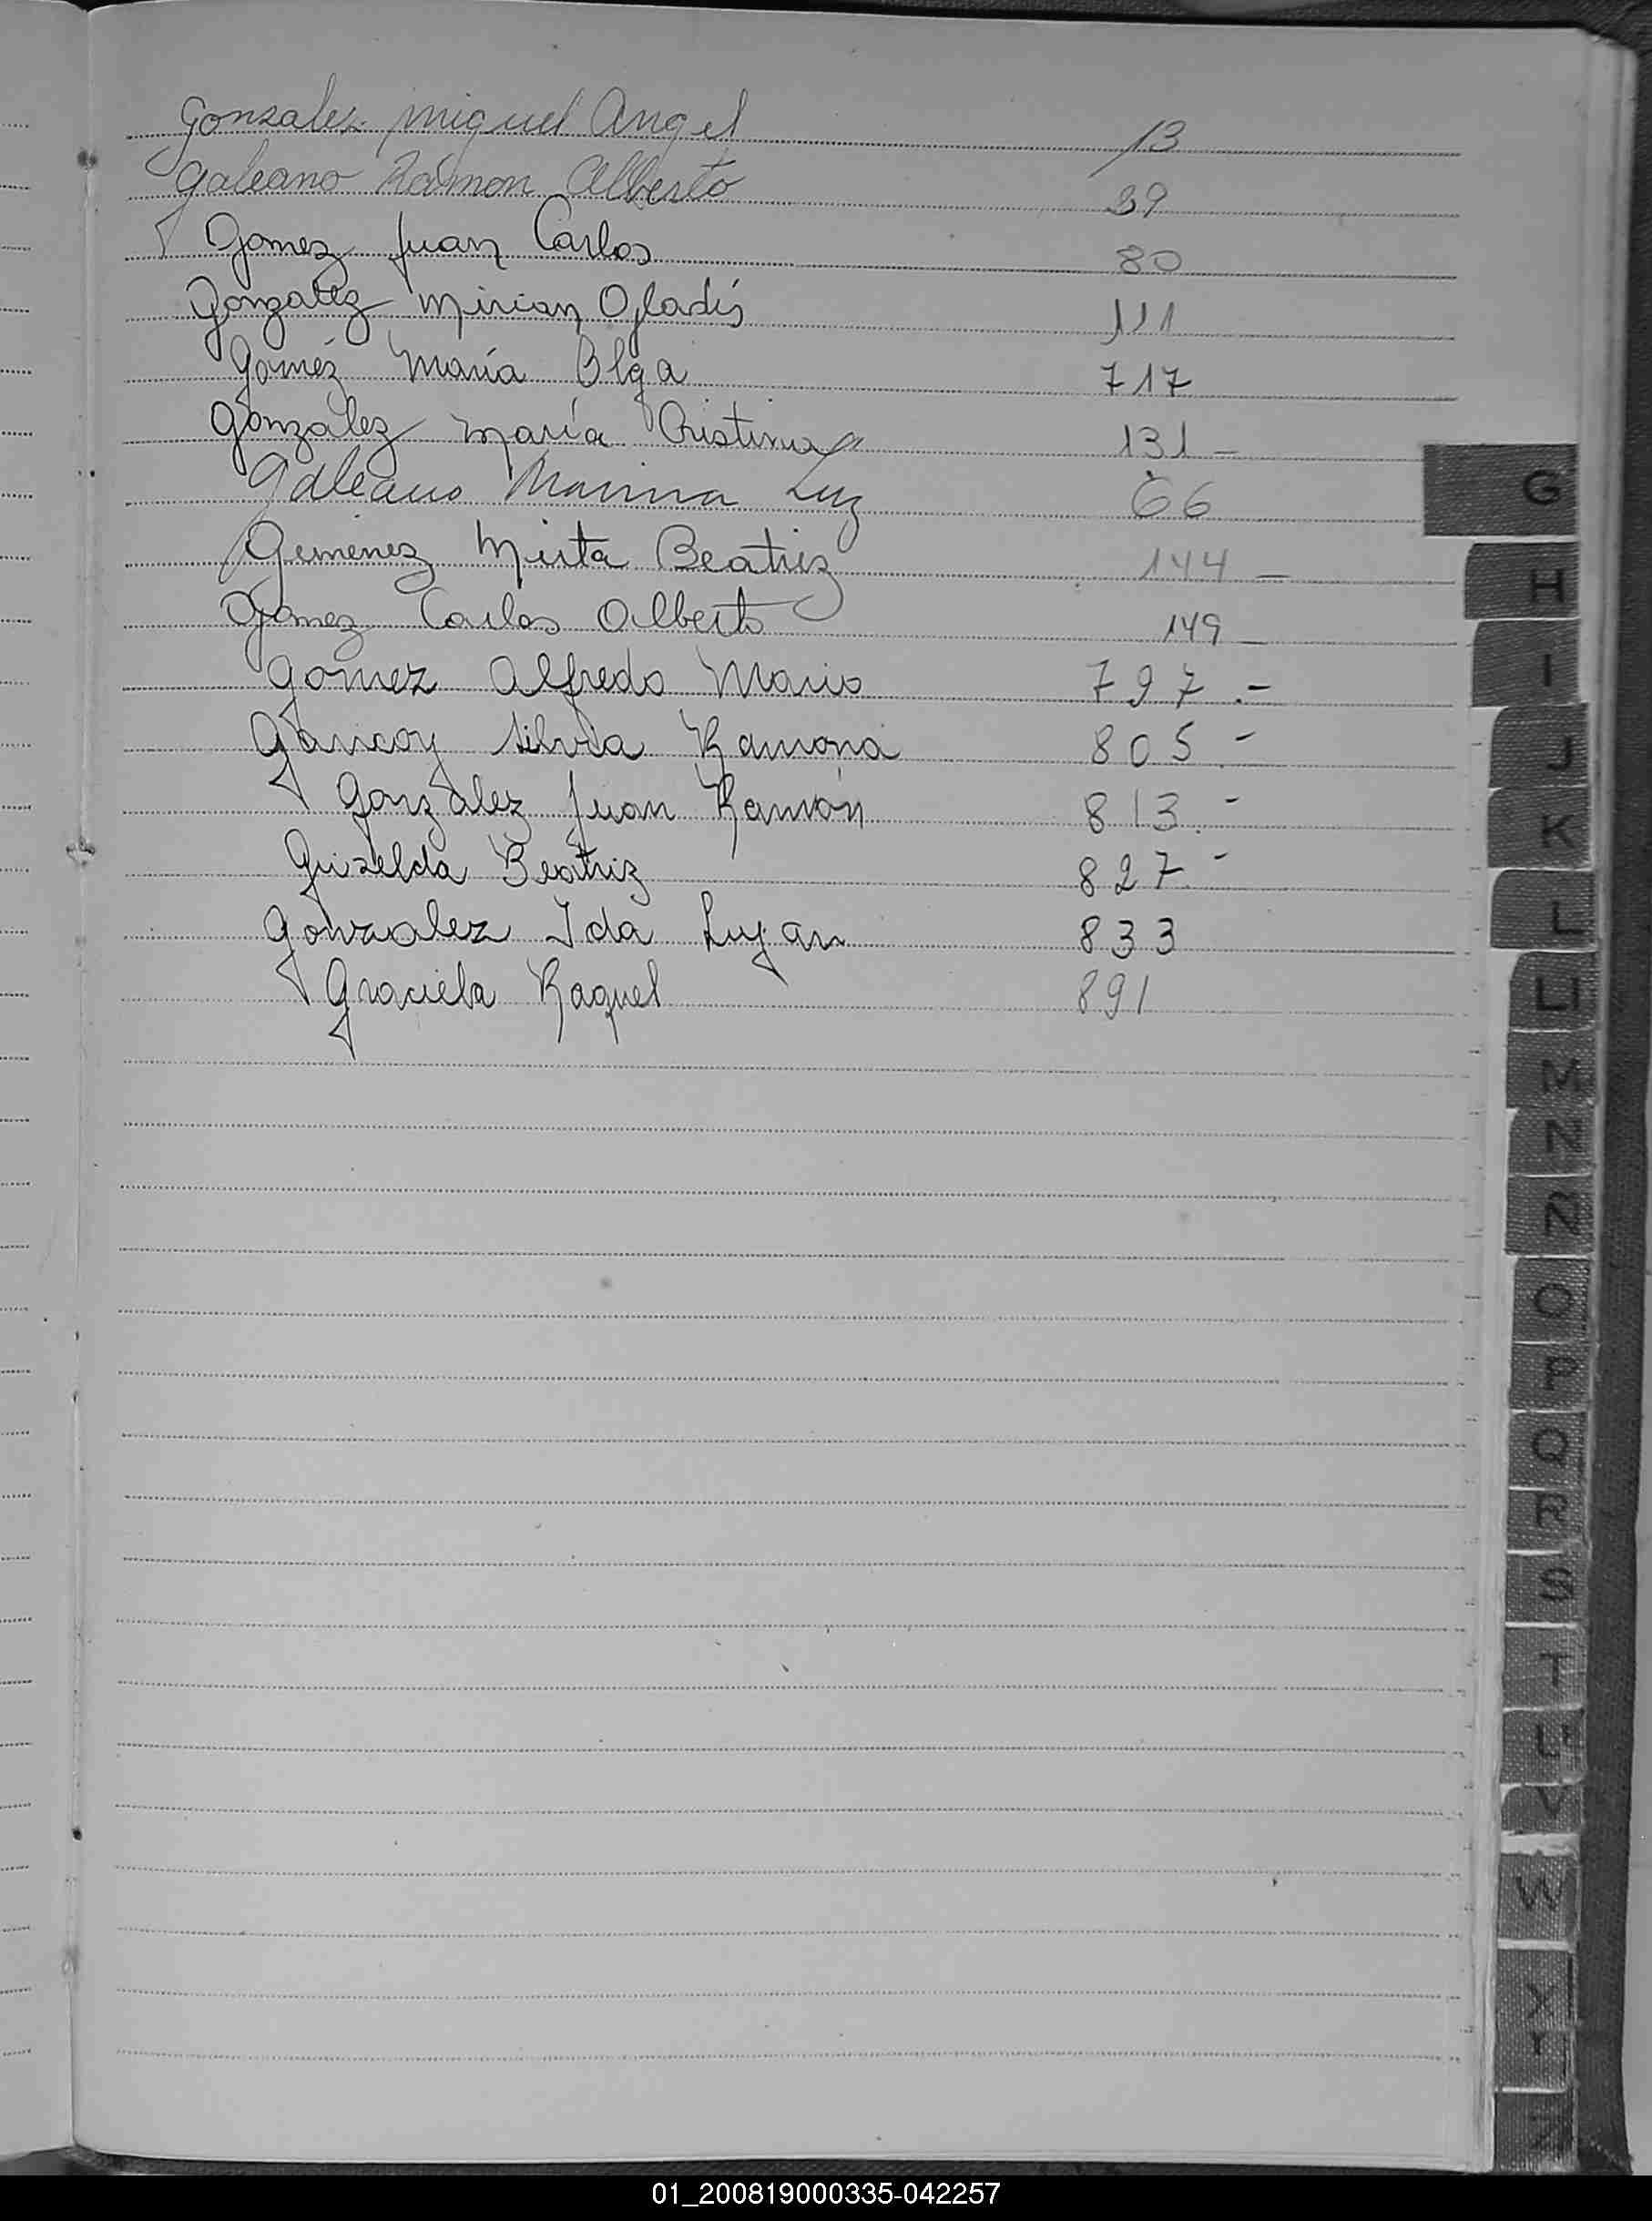 Gonzalez Miguel Angel 13
Galeano Ramon Alberto 39
Gomez Juan Carlos 80
Gonzalez Mirian Gladis 111
Goméz María Olga 717
González María Cristina 131 -
Galeano Marina Luz 66
Gemenez Mirta Beatriz 144 -
Gomez Carlos Alberto 149 -
Gomez Alfredo Mario 797 .-
Silvia Ramona 805 .-
González Juan Ramón 813 .-
Griselda Beatriz 827 .-
Gonzalez Ida Lujan 833
Graciela Raquel 891
G
H
I
J
K
L
LL
M
N
Ñ
O
P
Q
R
S
T
U
V
W
X
Y
Z
01_200819000335-042257